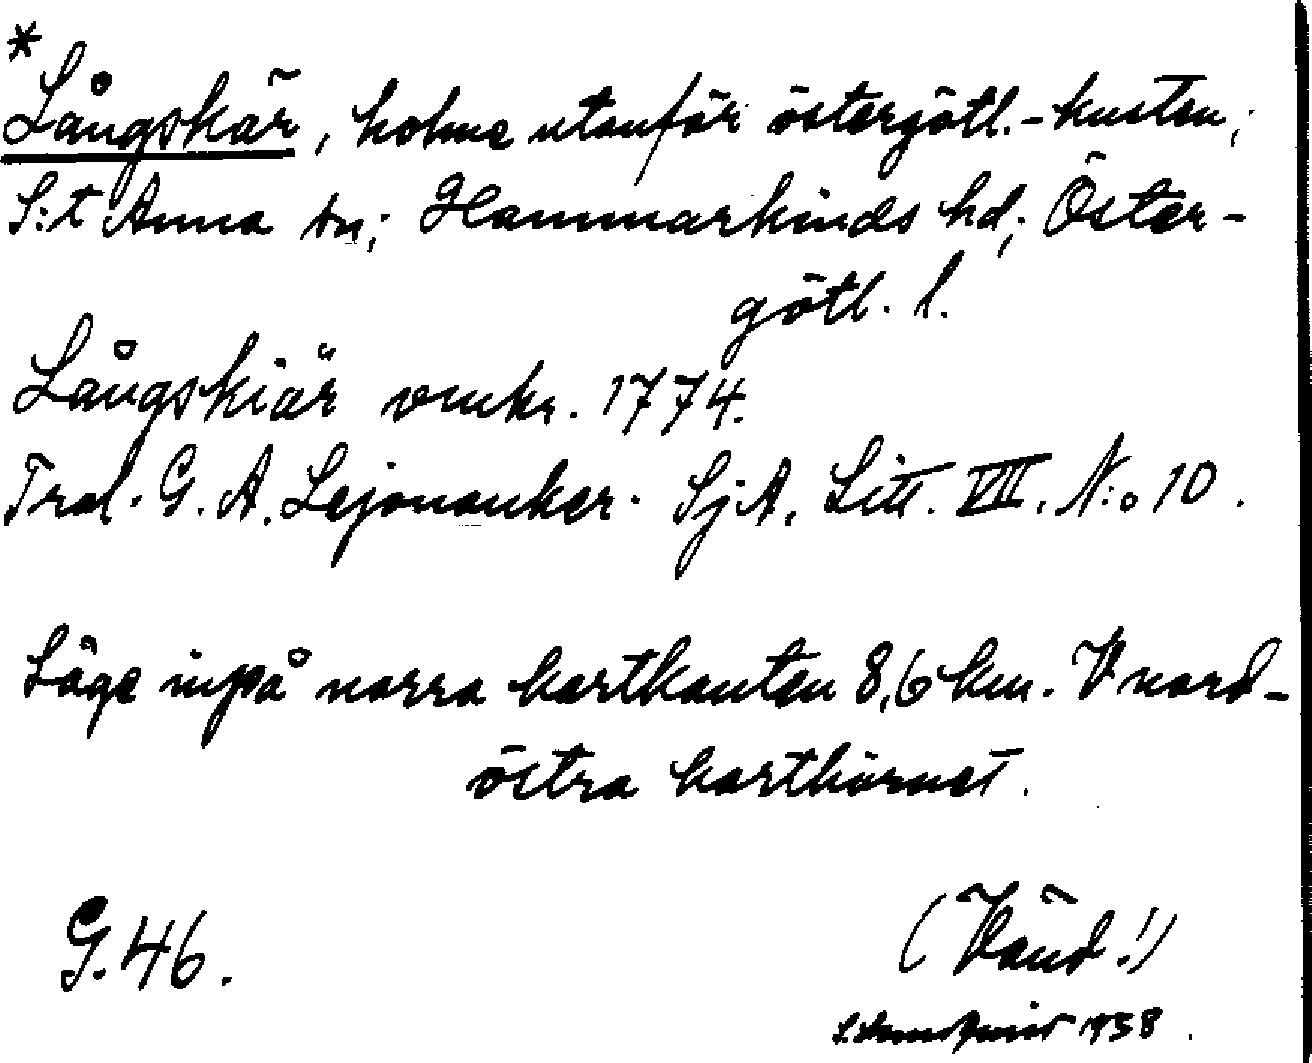 *
Långskär, holme utanför östergötl.-kusten;
S:t Anna sn; Hammarkinds hd; Öster-
götl. l.
Långskiär omkr. 1774.
Trol. G. A. Lejonanker. SjA. Litt. VIII. N:o 10.
Läge inpå norra kartkanten 8,6 km. V nord-
östra karthörnet.
G. 46.
(Vänd!)
1938.